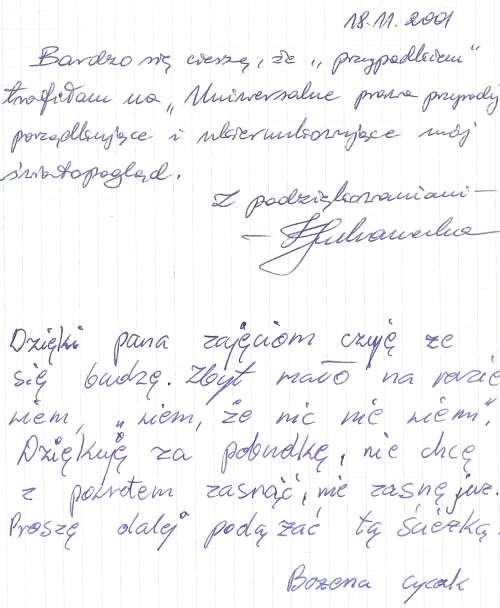 18.11.2001
Bardzo się cieszę, że „przypadkiem“
trafiłam na „Uniwersalne prawa przyrody
porządkujące i ukierunkowujące mój
światopogląd.
Z podziękowaniami
Dzięki pana zajęciom czuję ze
się budzę. Zbyt mało na razie
wiem, „wiem, że nic nie wiem“.
Dziękuję za pobudkę, nie chcę
z powrotem zasnąć, nie zasnę juz.
Proszę dalej podążać tą ścieżką.
Bozena